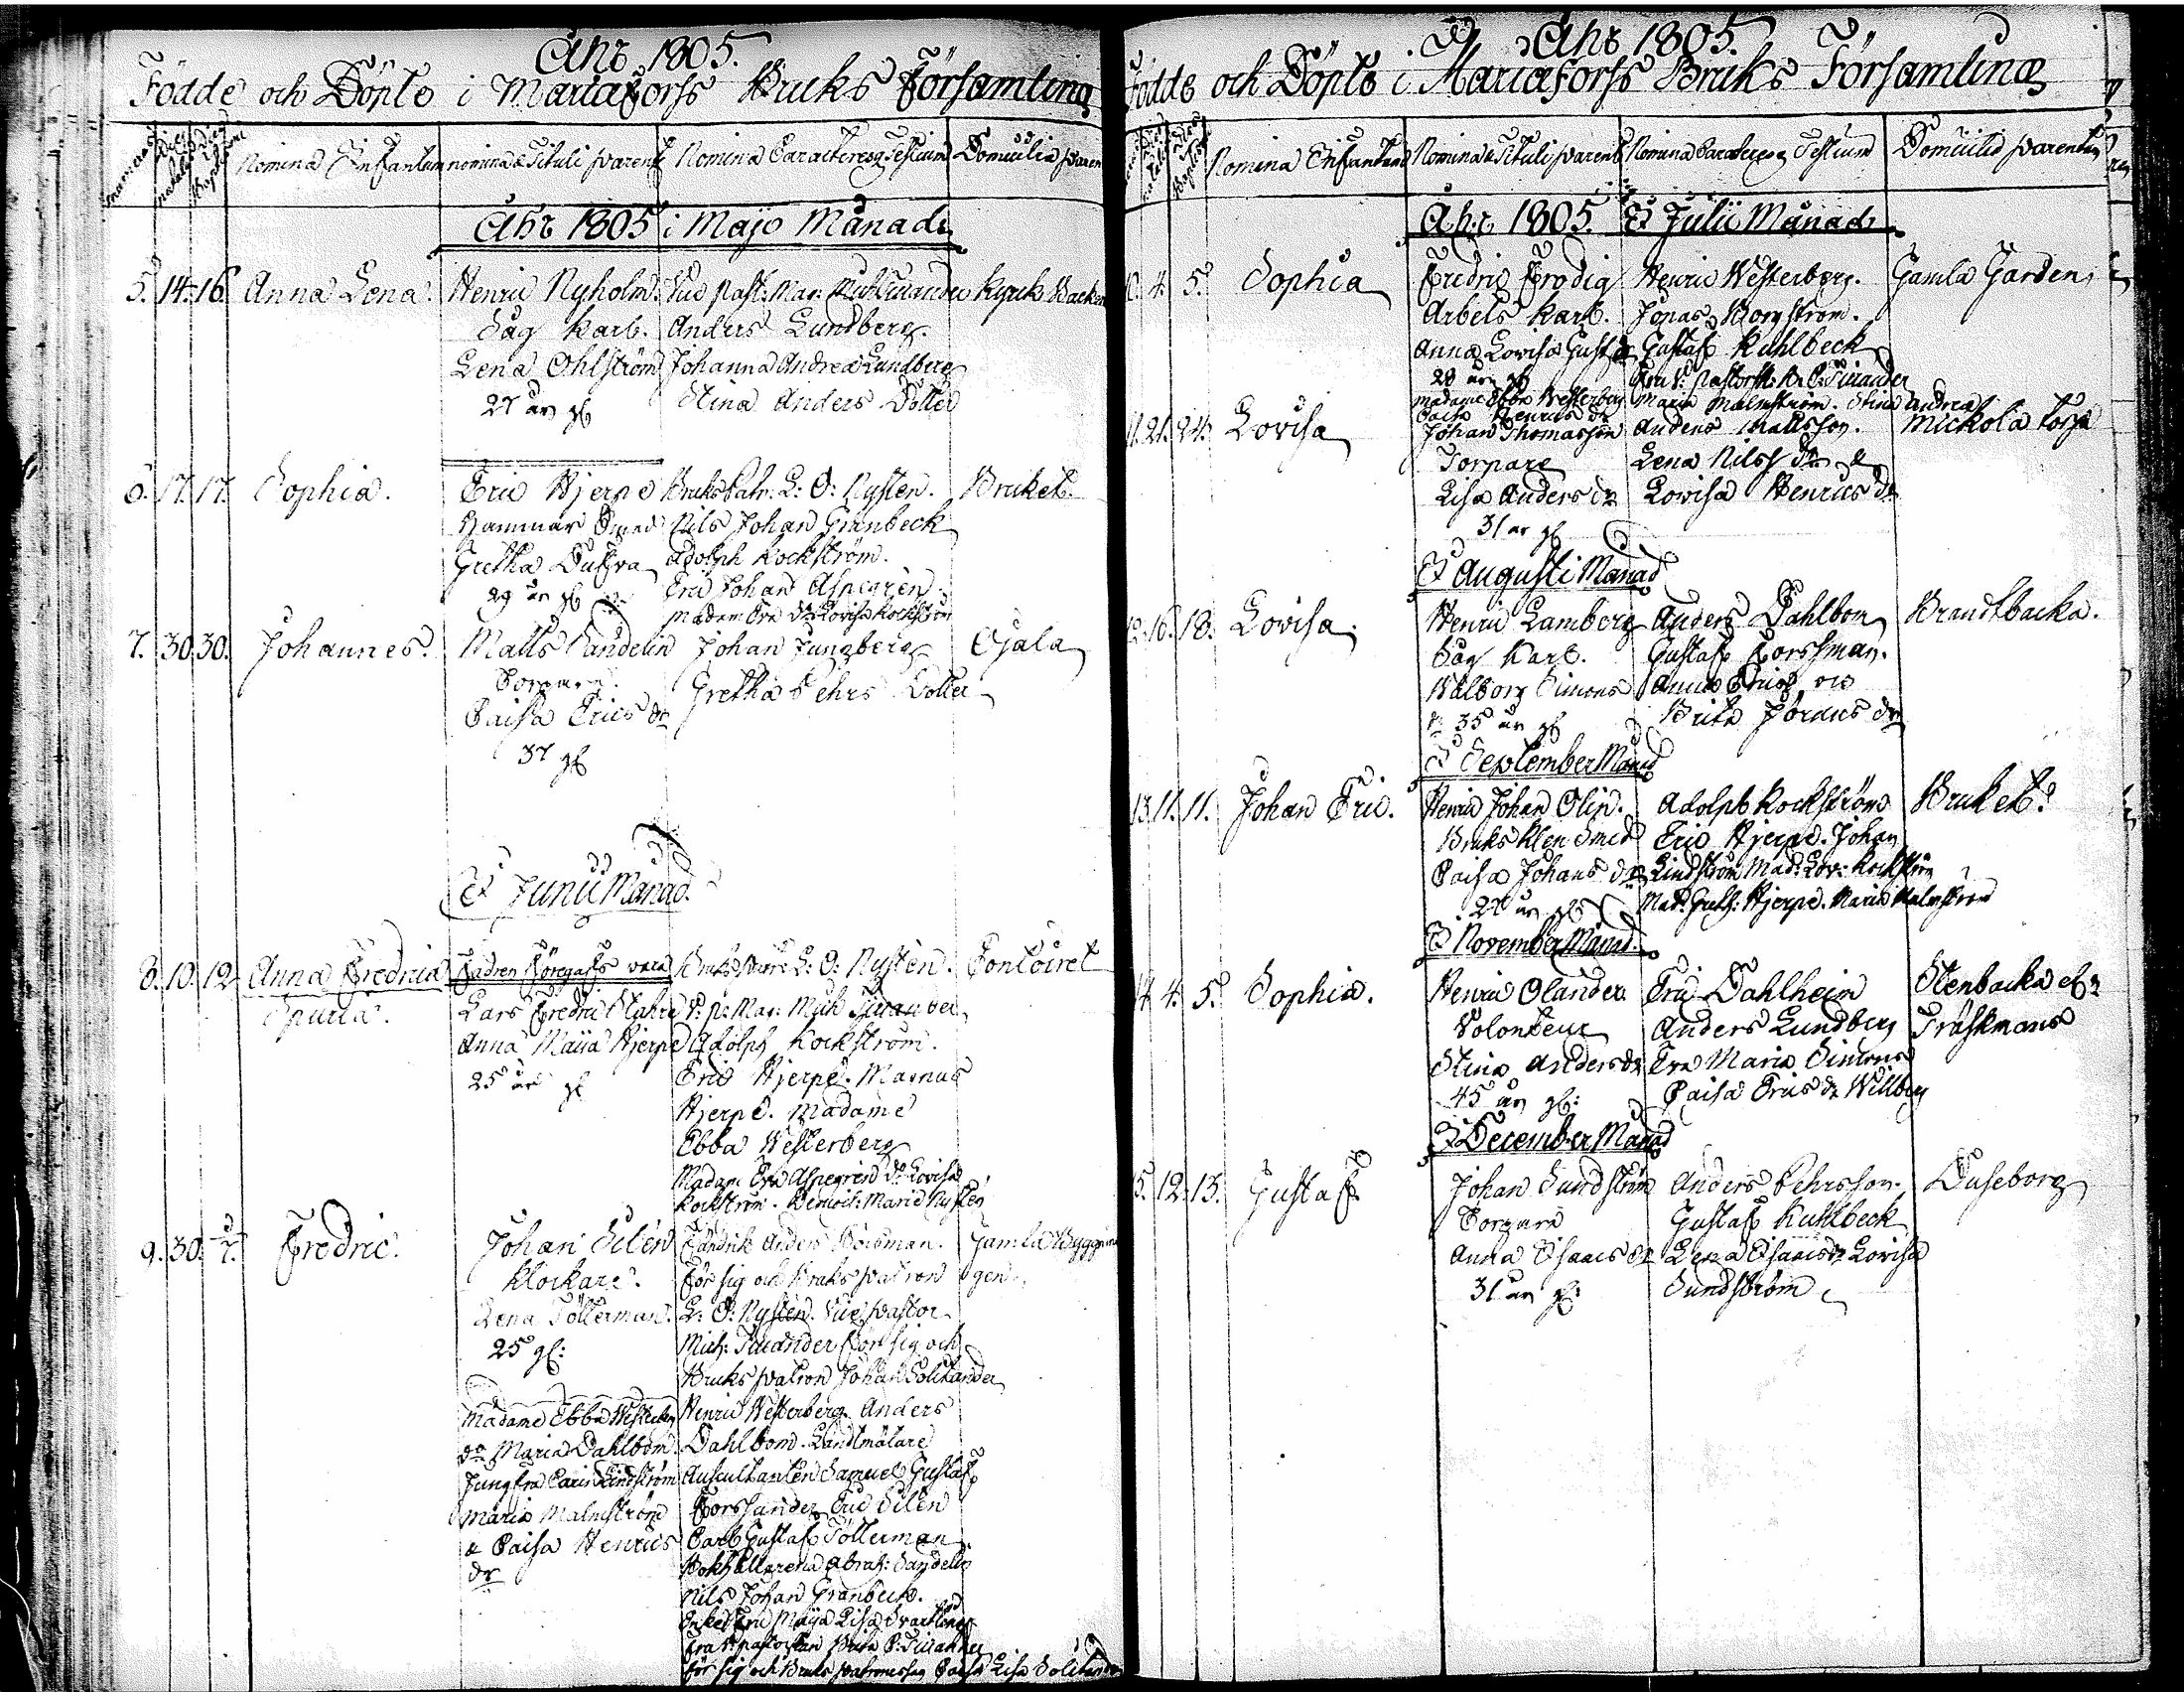 Åhr 1805.
Födde och Döpte i Mariæforss Bruks Församling
Nomina Infantum nomina & Tituli parent Nomina Caracteresq Testium Domicilia paren
Åhr 1805 i Majo Månad
5. 14. 16. Anna Lena. Henric Nyholm. Vice past: Mag: Mich Ticander Kyrck Backen
Såg Karl. Anders Lundberg.
Lena Ohlström Johanna Andrea Lundberg
27 år gl Stina Anders Dotter
6. 17. 17. Sophia. Eric Hjerpe Bruks Patr: L: O: Nysten. Bruket.
Hammar Smed Nils Johan Granbeck
Gretha Adolph Kockström.
29 år gl Eric Johan Aspegren
Madam Eva Do Lovisa Kockström
7. 30. 30. Johannes. Matts Sandelin Johan Jungberg Ojala
Torpare. Gretha Pehrs Dotter
Caisa Erics dr
37 gl
I Junii Månad.
8. 10. 12. Anna Fredrica Fadren föregafs vara Bruks Patr: L: O: Nysten. Contoiret
Spuria. Lars Fredric V: p: Mag: Mich Ticander
Anna Maija Hjerpe Adolph Kockström.
25 år gl Eric Hjerpe. Magnus
Hjerpe. Madame
Ebba Westerberg
Madam Eva Aspegren Do Lovisa
Kockström. Demois: Maria Nysten
9. 30. 7. Fredric. Johan Silén Fändrik Anders Forsman. Gamla Byggnin
Klockare. för sig och Bruks patron gen.
Lena Töllerman. L: O: Nysten. Vice pastor
25 gl: Mich: Ticander för sig och
Bruks patron Johan Solitander
Madame Ebba Westerberg Henric Westerberg. Anders
do Maria Dahlbom. Dahlbom. Landtmätare
Jungfru Carin Lindström Auscultanten Samuel Gustaf
Maria Malmström Forssander Eric Silén
& Caisa Henrics Carl Gustaf Töllerman
dr Bokhållarena Abrah: Sandelin
Nils Johan Granbeck.
Enkefru Maija Lisa
Fru V: pastorskan Ticander
för sig och Bruks patronessan Caisa Lisa Solitander
Åhr 1805.
Födde och Döpte i Mariæforss Bruks Församling
Nomina Infantum Nomina & Tituli parent Nomina Caracteresq Testium Domicilia parentum
Åhr 1805. I Julii Månad
10. 4. 5. Sophia Fredric Frodig Henric Westerberg. Gamla Garden
Arbets Karl. Jonas Borgström.
Anna Lovisa Gustaf Kuhlbeck
28 år gl Fru V: Pastorsk: Ticander
Madame Ebba Westerberg Maria Malmström. Stina Andrea
Caisa Henrics dr
11. 21. 24. Lovisa Johan Thomasson Anders Mattsson. Mickola Torp
Torpare Lena Nilss dr &
Lisa Anders dr Lovisa Henrics dr
31 år gl
I Augusti Månad
12. 16. 18. Lovisa. Henric Lamberg Anders Dahlbom Brandtbacka.
Såg Karl. Gustaf Forssman.
Walborg Simons Anna
dr 35 år gl Brita Jörans dr
I September Månad
13. 11. 11. Johan Eric. Henric Johan Olin. Adolph Kockström Bruket.
Bruks Klen Smed Eric Hjerpe. Johan
Caisa Johans dr Lindström Mad: Lov: Kockström
27 år gl Mad: Greth: Hjerpe. Maria Malmström
I November Månad.
14. 4. 5. Sophia. Henric Olander Eric Dahlheim Stenbacka elr
Volonteur Anders Lundberg Träskmans
Stina Anders dr Eva Maria Simons
45 år gl: Caisa Erics dr Willberg
I December Månad
15. 12. 13. Gustaf Johan Sundström Anders Pehrsson. Duseborg
Torpare Gustaf Kuhlbeck
Anna Isaacs dr Lena Isaacs dr Lovisa
31 år gl: Sundström